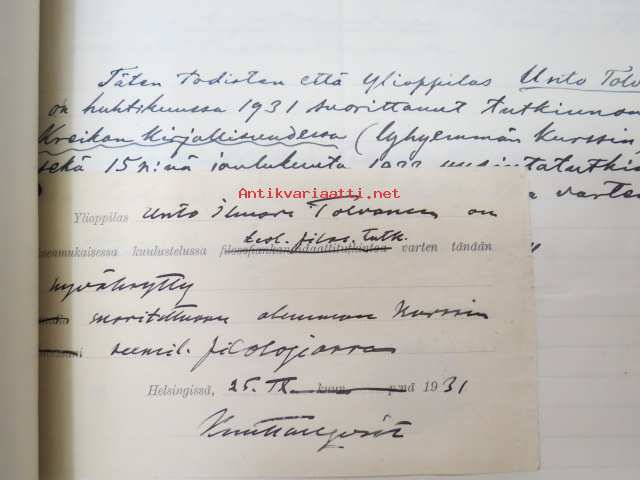 Täten todistan että ylioppilas Unto Tolv
on huhtikuussa 1931 suorittanut tutkinnon
Kreikan kirjallisuudessa (lyhyemmän kurssin
sekä 15 p:nä joulukuuta 1933
varten
Antikvariaatti.net
Ylioppilas Unto Ilmari Tolvanen on
teol. filos. tutk.
senmukaisessa kuulustelussa filosofiankandidaattitutkintoa varten tänään
hyväksytty
suorittanut alemman kurssin
seemil. filologiassa
Helsingissä, 25. IX. kuun p:nä 1931